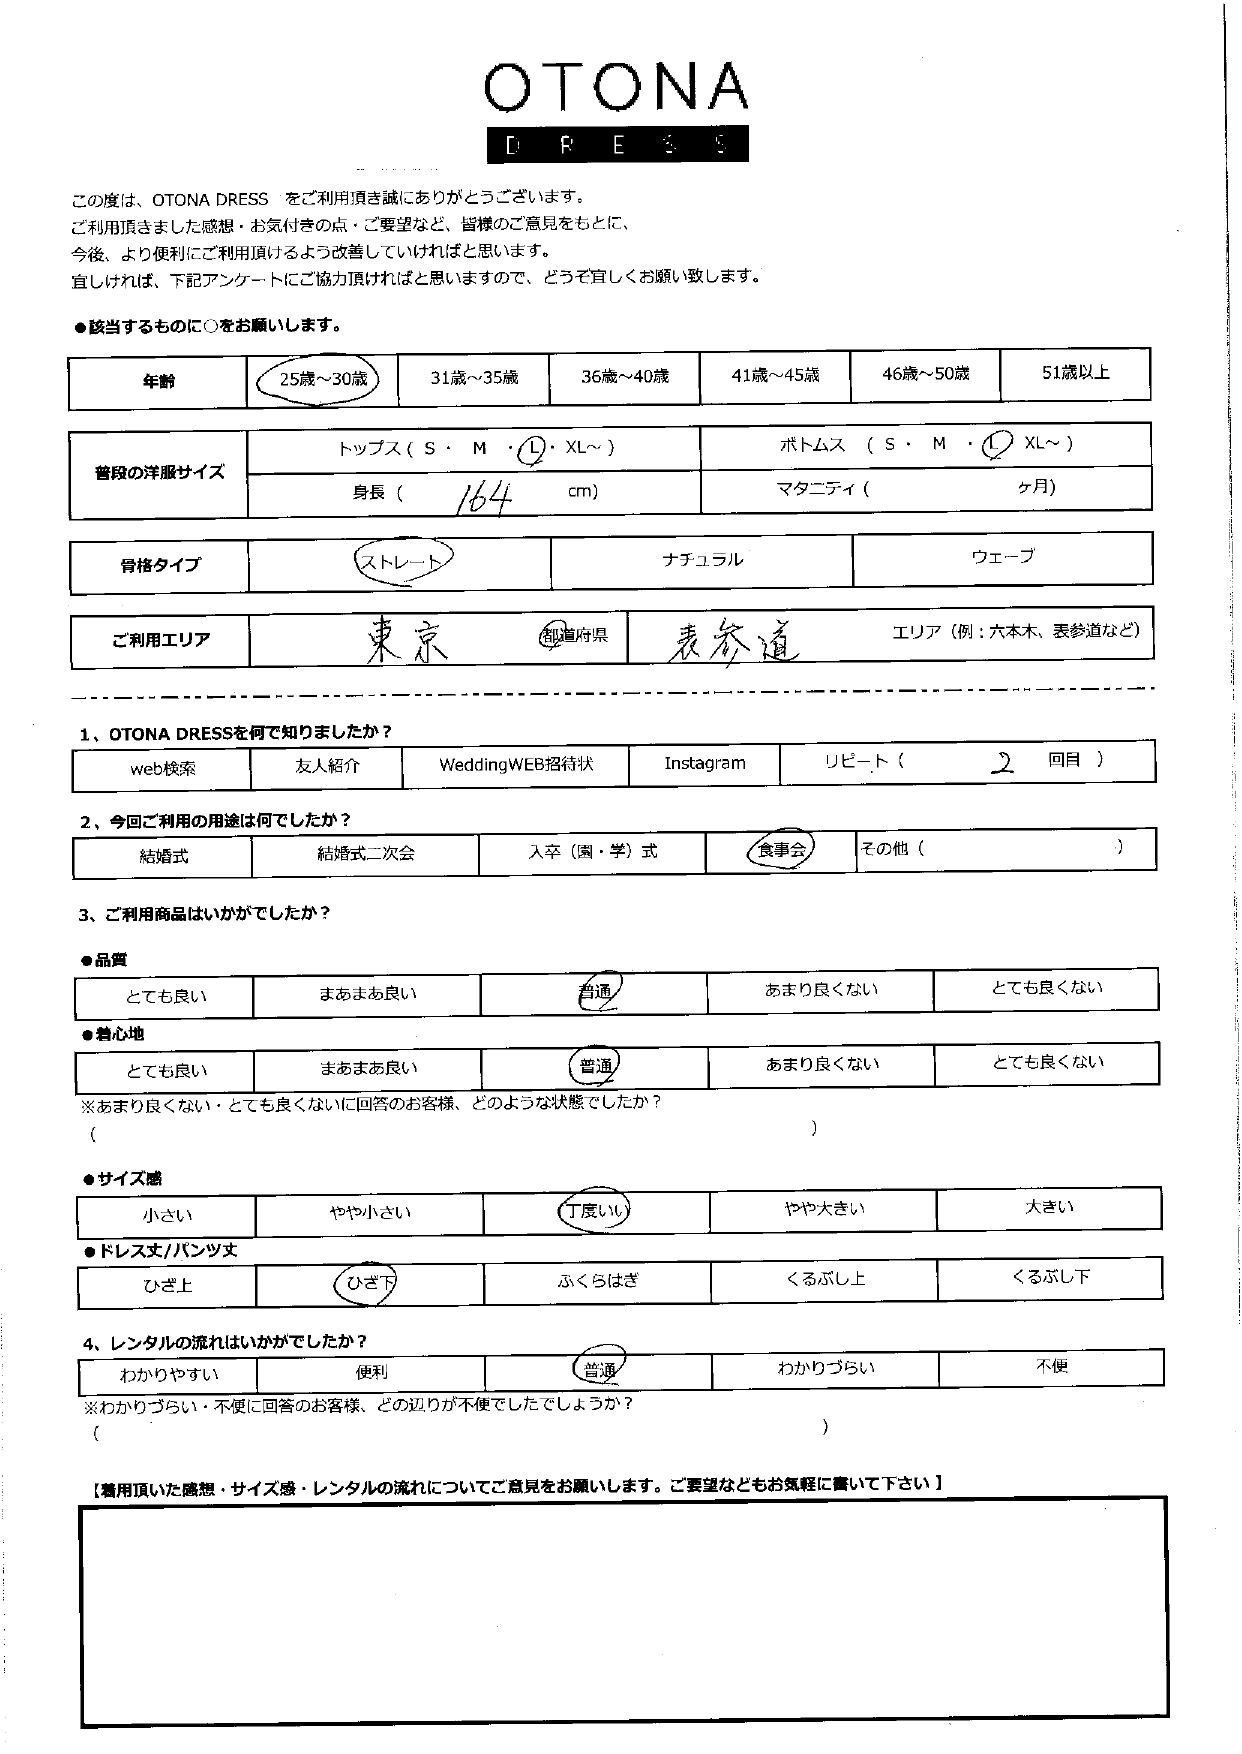 OTONA
DRESS
この度は、OTONA DRESS をご利用頂き誠にありがとうございます。
ご利用頂きました感想・お気付きの点・ご要望など、皆様のご意見をもとに、
今後、より便利にご利用頂けるよう改善していければと思います。
宜しければ、下記アンケートにご協力頂ければと思いますので、どうぞ宜しくお願い致します。
●該当するものに○をお願いします。
年齢 25歳～30歳 31歳～35歳 36歳～40歳 41歳～45歳 46歳～50歳 51歳以上
普段の洋服サイズ トップス ( S ・ M ・ L ・ XL～ ) ボトムス ( S ・ M ・ L XL～ )
身長 ( 164 cm) マタニティ ( ヶ月)
骨格タイプ ストレート ナチュラル ウェーブ
ご利用エリア 東京 都道府県 表参道 エリア（例：六本木、表参道など）
1、OTONA DRESSを何で知りましたか？
web検索 友人紹介 WeddingWEB招待状 Instagram リピート（ 2 回目 ）
2、今回ご利用の用途は何でしたか？
結婚式 結婚式二次会 入卒（園・学）式 食事会 その他（ ）
3、ご利用商品はいかがでしたか？
●品質
とても良い まあまあ良い 普通 あまり良くない とても良くない
●着心地
とても良い まあまあ良い 普通 あまり良くない とても良くない
※あまり良くない・とても良くないに回答のお客様、どのような状態でしたか？
( )
●サイズ感
小さい やや小さい 丁度いい やや大きい 大きい
●ドレス丈/パンツ丈
ひざ上 ひざ下 ふくらはぎ くるぶし上 くるぶし下
4、レンタルの流れはいかがでしたか？
わかりやすい 便利 普通 わかりづらい 不便
※わかりづらい・不便に回答のお客様、どの辺りが不便でしたでしょうか？
( )
【着用頂いた感想・サイズ感・レンタルの流れについてご意見をお願いします。ご要望などもお気軽に書いて下さい】